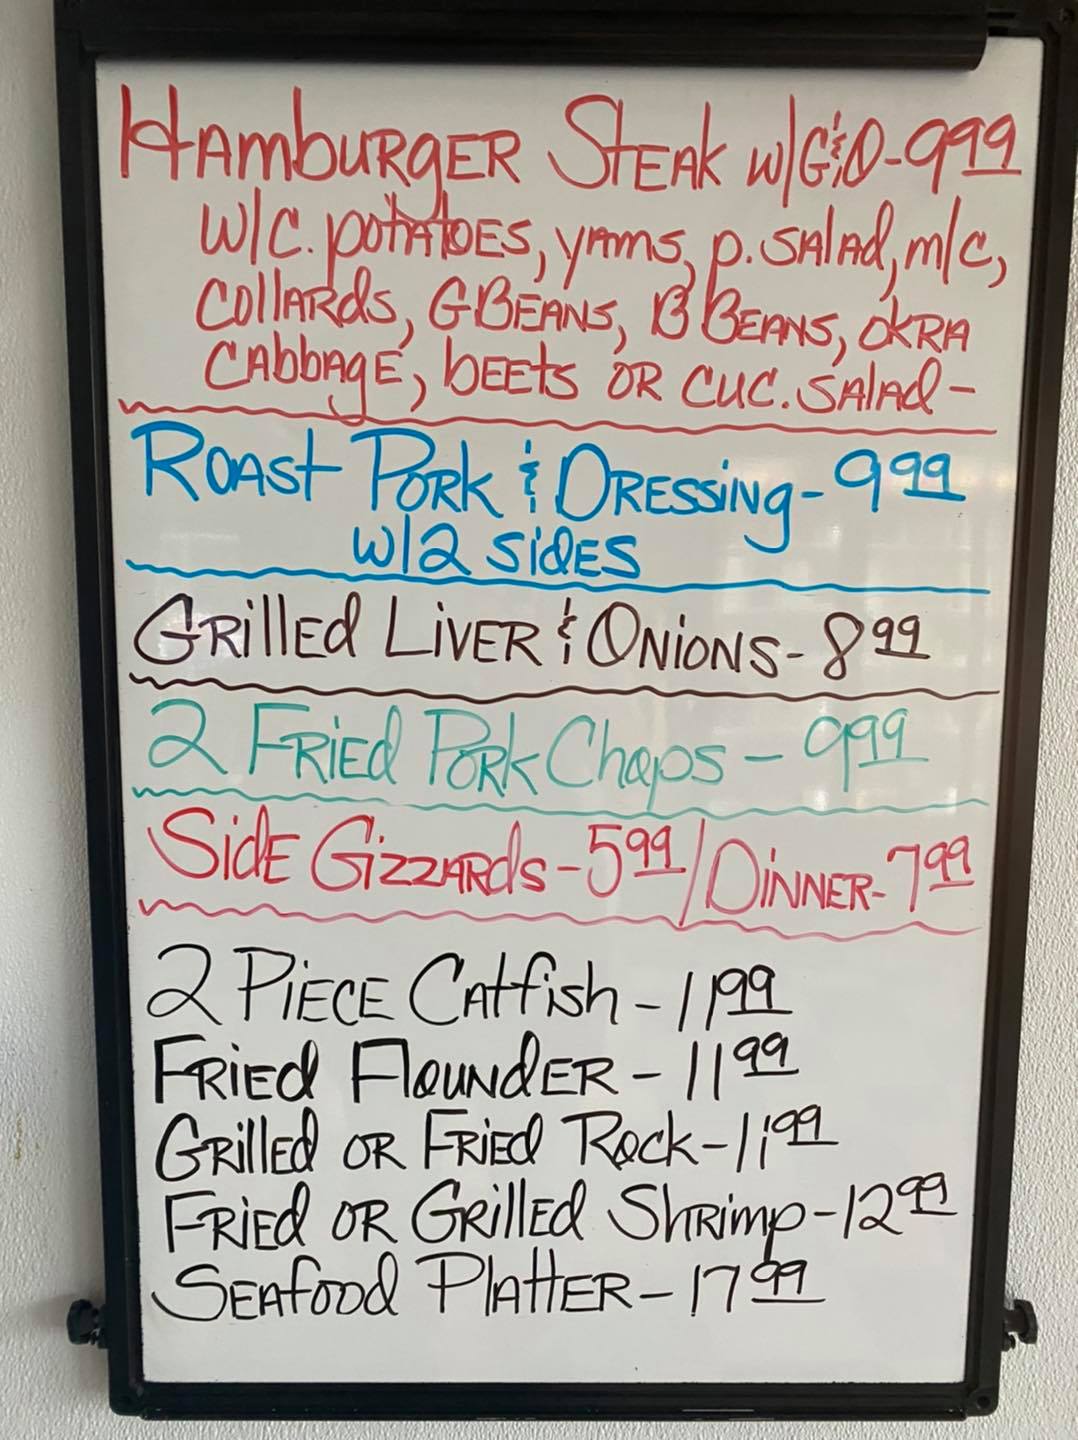 HAmburgER STEAK w/G&O-9.99
W/C. potAtoES, yAms, p. SAlAd, m/c,
COllARds, GBEANS, B BEANS, OKRA
CAbbAgE, bEEts OR CUC. SAlAd-
ROAST PORK & DRESSING-9 99
w/2 SidES
GRillEd LIVER & ONIONS-8 99
2 FRiEd PORK Chops-9 99
SidE GizzARds-5 99/DINNER-7 99
2 PIECE CAtfish-11 99
FRiEd FlounDER-11 99
GRillEd OR FRiEd Rock-11 99
FRiEd OR GRillEd ShRimp-12 99
SEAfood PlAttER-17 99